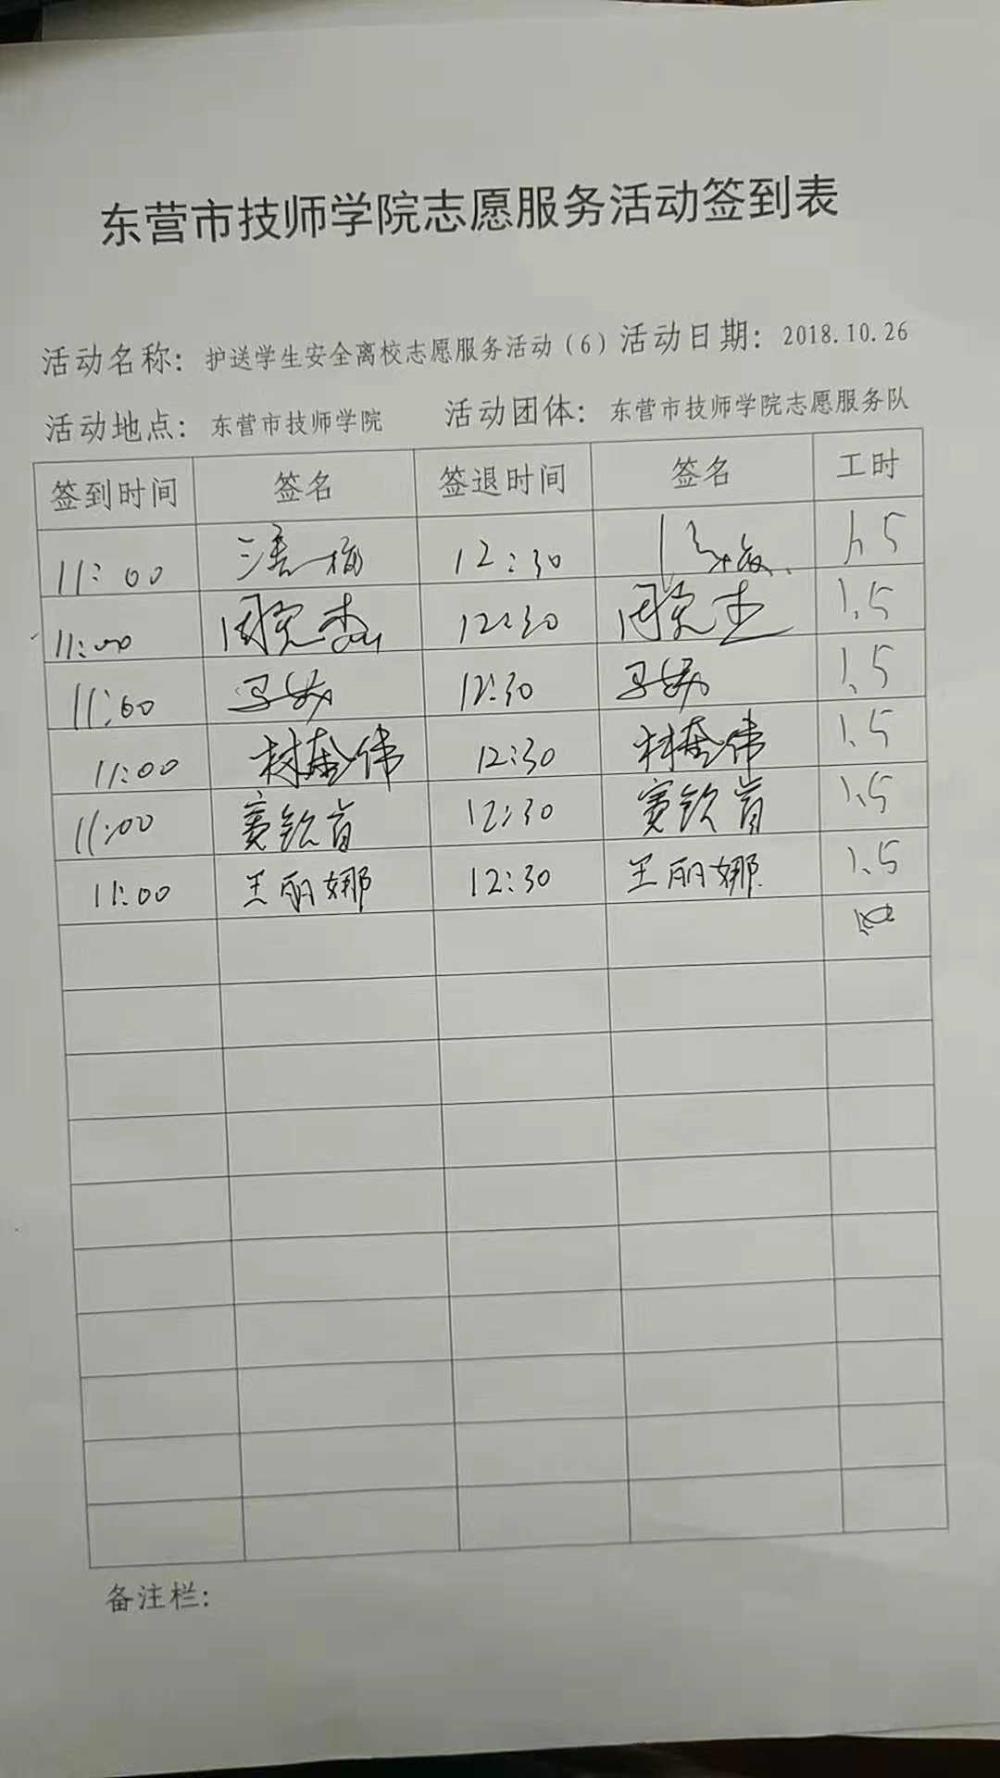 东营市技师学院志愿服务活动签到表
活动名称：护送学生安全离校志愿服务活动（6）活动日期：2018.10.26
活动地点：东营市技师学院 活动团体：东营市技师学院志愿服务队
签到时间 签名 签退时间 签名 工时
11:00 12:30 1.5
11:00 12:30 1.5
11:00 12:30 1.5
11:00 12:30 1.5
11:00 12:30 1.5
11:00 王丽娜 12:30 王丽娜 1.5
备注栏：